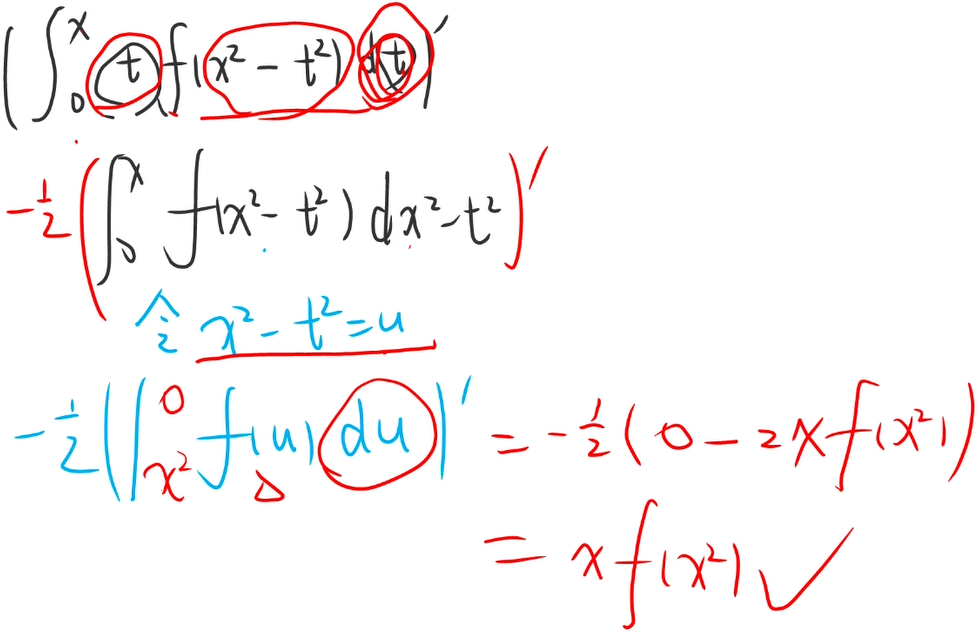 (∫₀ˣ t f(x² - t²) dt)′
-½(∫₀ˣ f(x² - t²) dx² - t²)′
令 x² - t² = u
-½(∫_{x²}^{0} f(u) du)′ = -½(0 - 2x f(x²))
= x f(x²) ✓